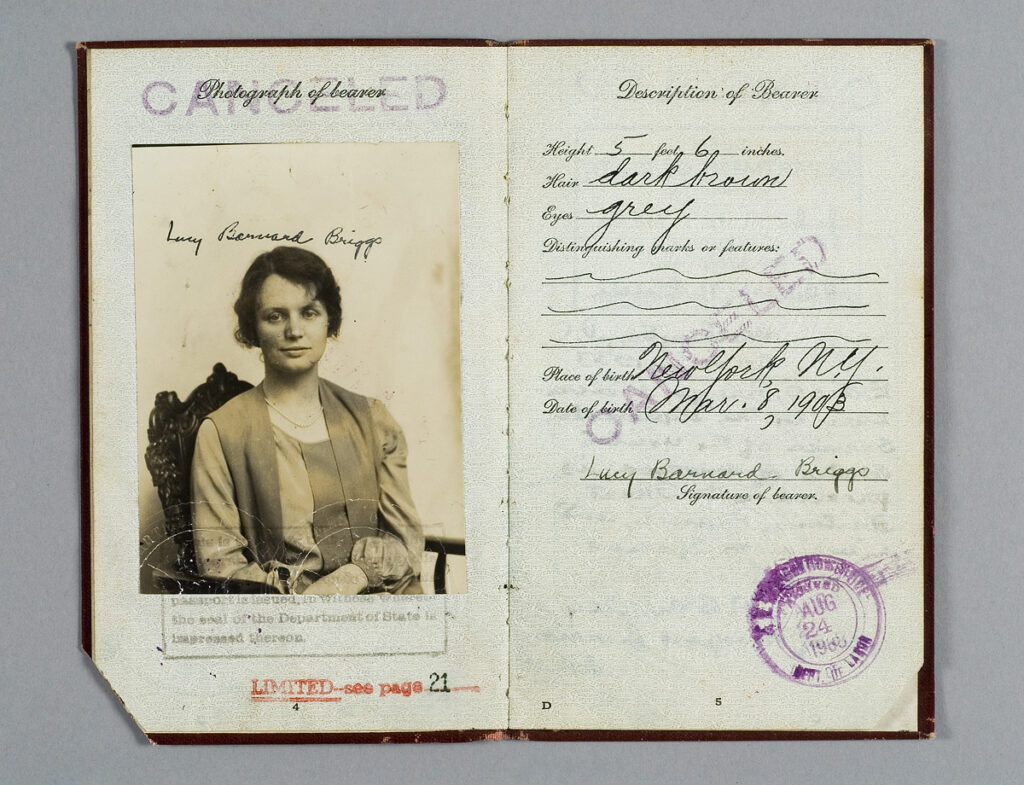 CANCELED
Photograph of bearer
Lucy Barnard Briggs
passport is issued, in witness
the seal of the Department of State is
impressed thereon.
LIMITED--see page 21
4
Description of Bearer
Height 5 feet 6 inches.
Hair dark brown
Eyes grey
Distinguishing marks or features:
CANCELED
Place of birth New York, N.Y.
Date of birth Mar. 8, 1903
Lucy Barnard Briggs
Signature of bearer.
AUG
24
DEPT. OF LABOR
D
5